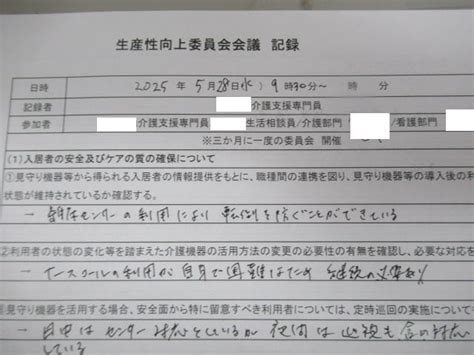 生産性向上委員会会議 記録
日時 2025 年 5月 28日(水) 9時30分~ 時 分
記録者 介護支援専門員
参加者 介護支援専門員 生活相談員/介護部門 /看護部門
※三か月に一度の委員会 開催
(1)入居者の安全及びケアの質の確保について
①見守り機器等から得られる入居者の情報提供をもとに、職種間の連携を図り、見守り機器等の導入後の利
状態が維持されているか確認する。
→ センサーの利用により 転倒を防ぐことができている
②利用者の状態の変化等を踏まえた介護機器の活用方法の変更の必要性の有無を確認し、必要な対応を
→ ナースコールの利用が自身で困難なため 継続の必要あり
見守り機器を活用する場合、安全面から特に留意すべき利用者については、定時巡回の実施について
→ 日中はセンサー対応をしているが 夜間は巡視も含め対応
している